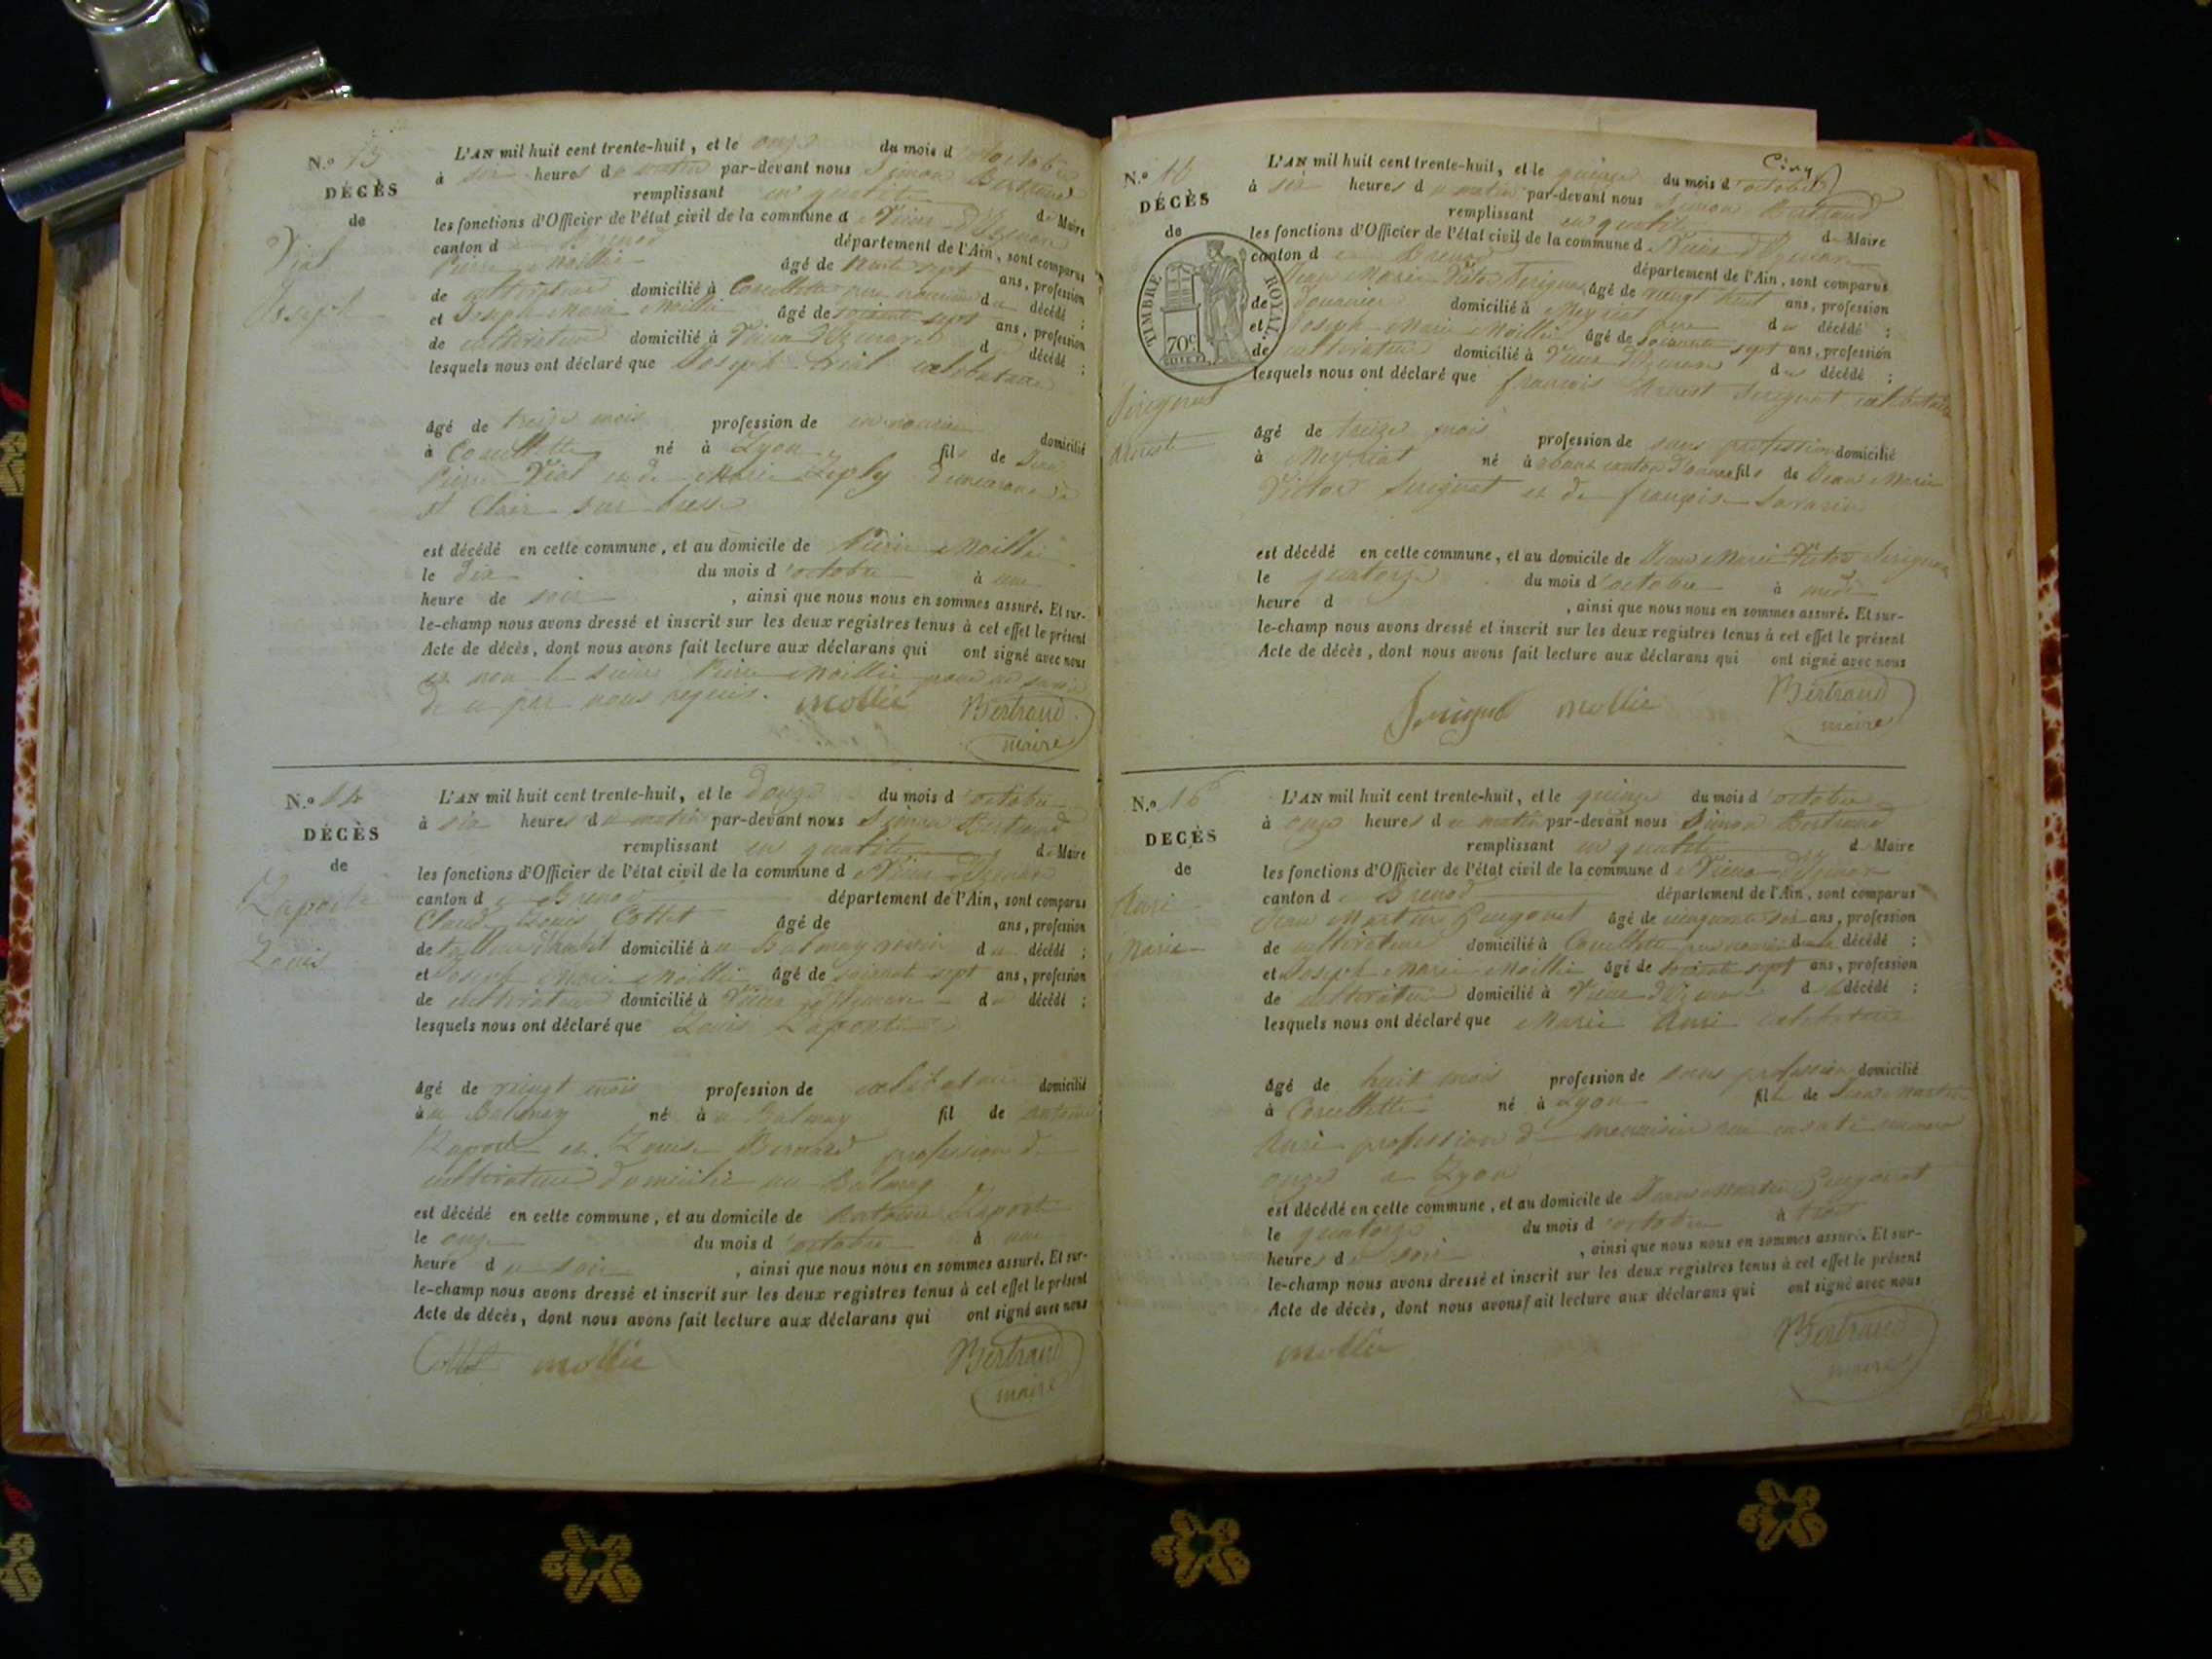 N.o 13
DÉCÈS
de
Vial
Joseph
L'AN mil huit cent trente-huit, et le onze du mois d'octobre
à six heures du matin par-devant nous Simon Bertrand
remplissant en qualité de Maire
les fonctions d'Officier de l'état civil de la commune de Vieux d'Izenave
canton de Brenod département de l'Ain, sont comparus
Pierre Moillie âgé de trente sept ans, profession
de cultivateur domicilié à père nourricier du décédé ;
et Joseph Marie Moillie âgé de soixante sept ans, profession
de cultivateur domicilié à Vieux d'Izenave d décédé ;
lesquels nous ont déclaré que Joseph Vial celibataire
âgé de treize mois profession de en nourrice domicilié
à né à Lyon fils de Jean
Pierre Vial et de Marie
St Clair sur
est décédé en cette commune, et au domicile de Pierre Moillie
le dix du mois d'octobre à une
heure de soir , ainsi que nous nous en sommes assuré. Et sur-
le-champ nous avons dressé et inscrit sur les deux registres tenus à cet effet le présent
Acte de décès, dont nous avons fait lecture aux déclarans qui ont signé avec nous
et non le sieur Pierre Moillie pour ne savoir
de ce par nous requis. Mollie Bertrand
maire
N.o 14
DÉCÈS
de
Laporte
Louis
L'AN mil huit cent trente-huit, et le douze du mois d'octobre
à six heures du matin par-devant nous Simon Bertrand
remplissant en qualité de Maire
les fonctions d'Officier de l'état civil de la commune de Vieux d'Izenave
canton de Brenod département de l'Ain, sont comparus
Claude Louis Cottet âgé de ans, profession
de tailleur d'habit domicilié à au Balmay voisin du décédé ;
et Joseph Marie Moillie âgé de soixante sept ans, profession
de cultivateur domicilié à Vieux d'Izenave du décédé ;
lesquels nous ont déclaré que Louis Laporte
âgé de vingt mois profession de celibataire domicilié
à au Balmay né à au Balmay fil de antoine
Laporte et Louise Bernard profession de
cultivateur domicilié au Balmay
est décédé en cette commune, et au domicile de Antoine Laporte
le onze du mois d'octobre à une
heure du soir , ainsi que nous nous en sommes assuré. Et sur-
le-champ nous avons dressé et inscrit sur les deux registres tenus à cet effet le présent
Acte de décès, dont nous avons fait lecture aux déclarans qui ont signé avec nous
Cottet Mollie Bertrand
maire
Cinq
N.o
DÉCÈS
de
TIMBRE ROYAL.
70c
L'AN mil huit cent trente-huit, et le quinze du mois d'octobre
à six heures du matin par-devant nous Simon Bertrand
remplissant en qualité de Maire
les fonctions d'Officier de l'état civil de la commune de Vieux d'Izenave
canton de Brenod département de l'Ain, sont comparus
Jean Marie Victor âgé de vingt huit ans, profession
de Douanier domicilié à Meyriat père du décédé ;
et Joseph Marie Moillie âgé de soixante sept ans, profession
de cultivateur domicilié à Vieux d'Izenave du décédé ;
lesquels nous ont déclaré que françois celibataire
âgé de treize mois profession de sans profession domicilié
à Meyriat né à canton fils de Jean Marie
Victor et de françoise
est décédé en cette commune, et au domicile de Jean Marie Victor
le quatorze du mois d'octobre à midi
heure d , ainsi que nous nous en sommes assuré. Et sur-
le-champ nous avons dressé et inscrit sur les deux registres tenus à cet effet le présent
Acte de décès, dont nous avons fait lecture aux déclarans qui ont signé avec nous
Mollie Bertrand
maire
N.o 16
DÉCÈS
de
Marie
L'AN mil huit cent trente-huit, et le quinze du mois d'octobre
à onze heures du matin par-devant nous Simon Bertrand
remplissant en qualité de Maire
les fonctions d'Officier de l'état civil de la commune de Vieux d'Izenave
canton de Brenod département de l'Ain, sont comparus
Jean âgé de cinquante six ans, profession
de cultivateur domicilié à père nourricier de la décédé ;
et Joseph Marie Moillie âgé de soixante sept ans, profession
de cultivateur domicilié à Vieux d'Izenave d la décédé ;
lesquels nous ont déclaré que Marie celibataire
âgé de huit mois profession de sans profession domicilié
à né à Lyon fille de Jean
profession de menuisier rue numero
onze a Lyon
est décédé en cette commune, et au domicile de Jean
le quatorze du mois d'octobre à trois
heures du soir , ainsi que nous nous en sommes assuré. Et sur-
le-champ nous avons dressé et inscrit sur les deux registres tenus à cet effet le présent
Acte de décès, dont nous avons fait lecture aux déclarans qui ont signé avec nous
Mollie Bertrand
maire